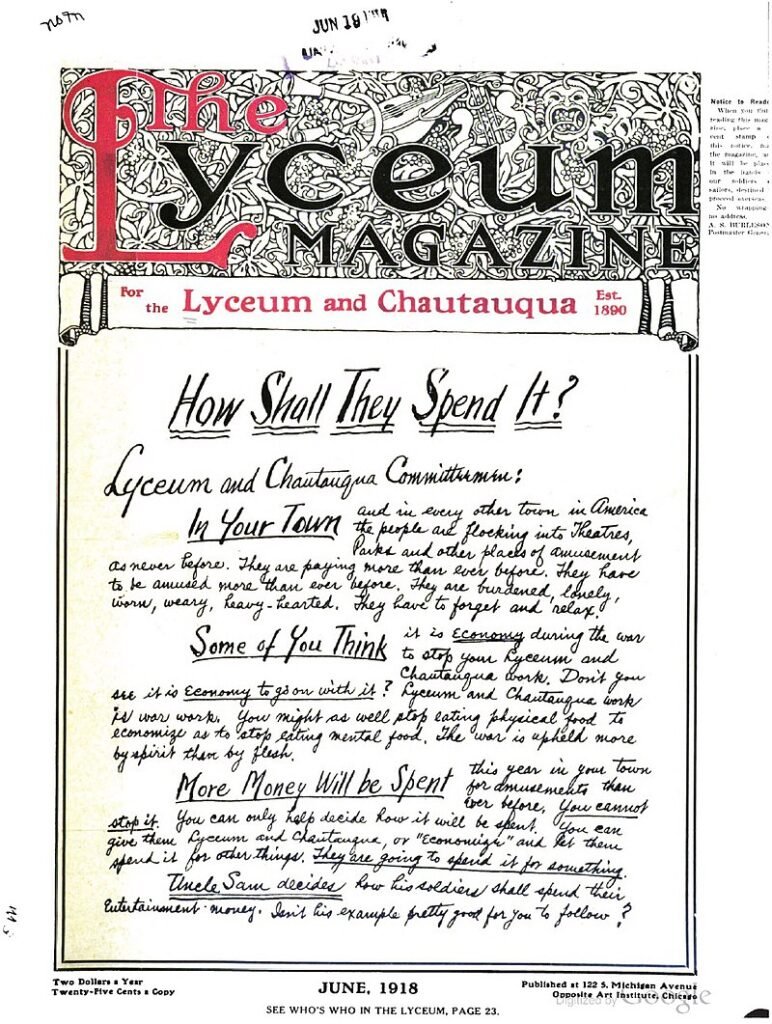 JUN 19
The
Lyceum
MAGAZINE
For the Lyceum and Chautauqua Est. 1890
Notice to Reade
When you fini
reading this mag
zine, place a
cent stamp o
this notice, ma
the magazine, a
it will be plac
in the hands
our soldiers
sailors, destined
proceed overseas.
No wrapping
no address.
A. S. BURLESON
Postmaster Genera
How Shall They Spend It?
Lyceum and Chautauqua Committeemen:
In Your Town and in every other town in America
the people are flocking into Theatres,
Parks and other places of amusement
as never before. They are paying more than ever before. They have
to be amused more than ever before. They are burdened, lonely,
worn, weary, heavy-hearted. They have to forget and relax.
Some of You Think it is Economy during the war
to stop your Lyceum and
Chautauqua work. Don't you
see it is Economy to go on with it? Lyceum and Chautauqua work
is war work. You might as well stop eating physical food to
economize as to stop eating mental food. The war is upheld more
by spirit than by flesh.
More Money Will be Spent this year in your town
for amusements than
ever before. You cannot
stop it. You can only help decide how it will be spent. You can
give them Lyceum and Chautauqua, or "Economize" and let them
spend it for other things. They are going to spend it for something.
Uncle Sam decides how his soldiers shall spend their
Entertainment-money. Isn't his example pretty good for you to follow?
Two Dollars a Year
Twenty-Five Cents a Copy
JUNE, 1918
Published at 122 S. Michigan Avenue
Opposite Art Institute, Chicago
SEE WHO'S WHO IN THE LYCEUM, PAGE 23.
Digitized by Google